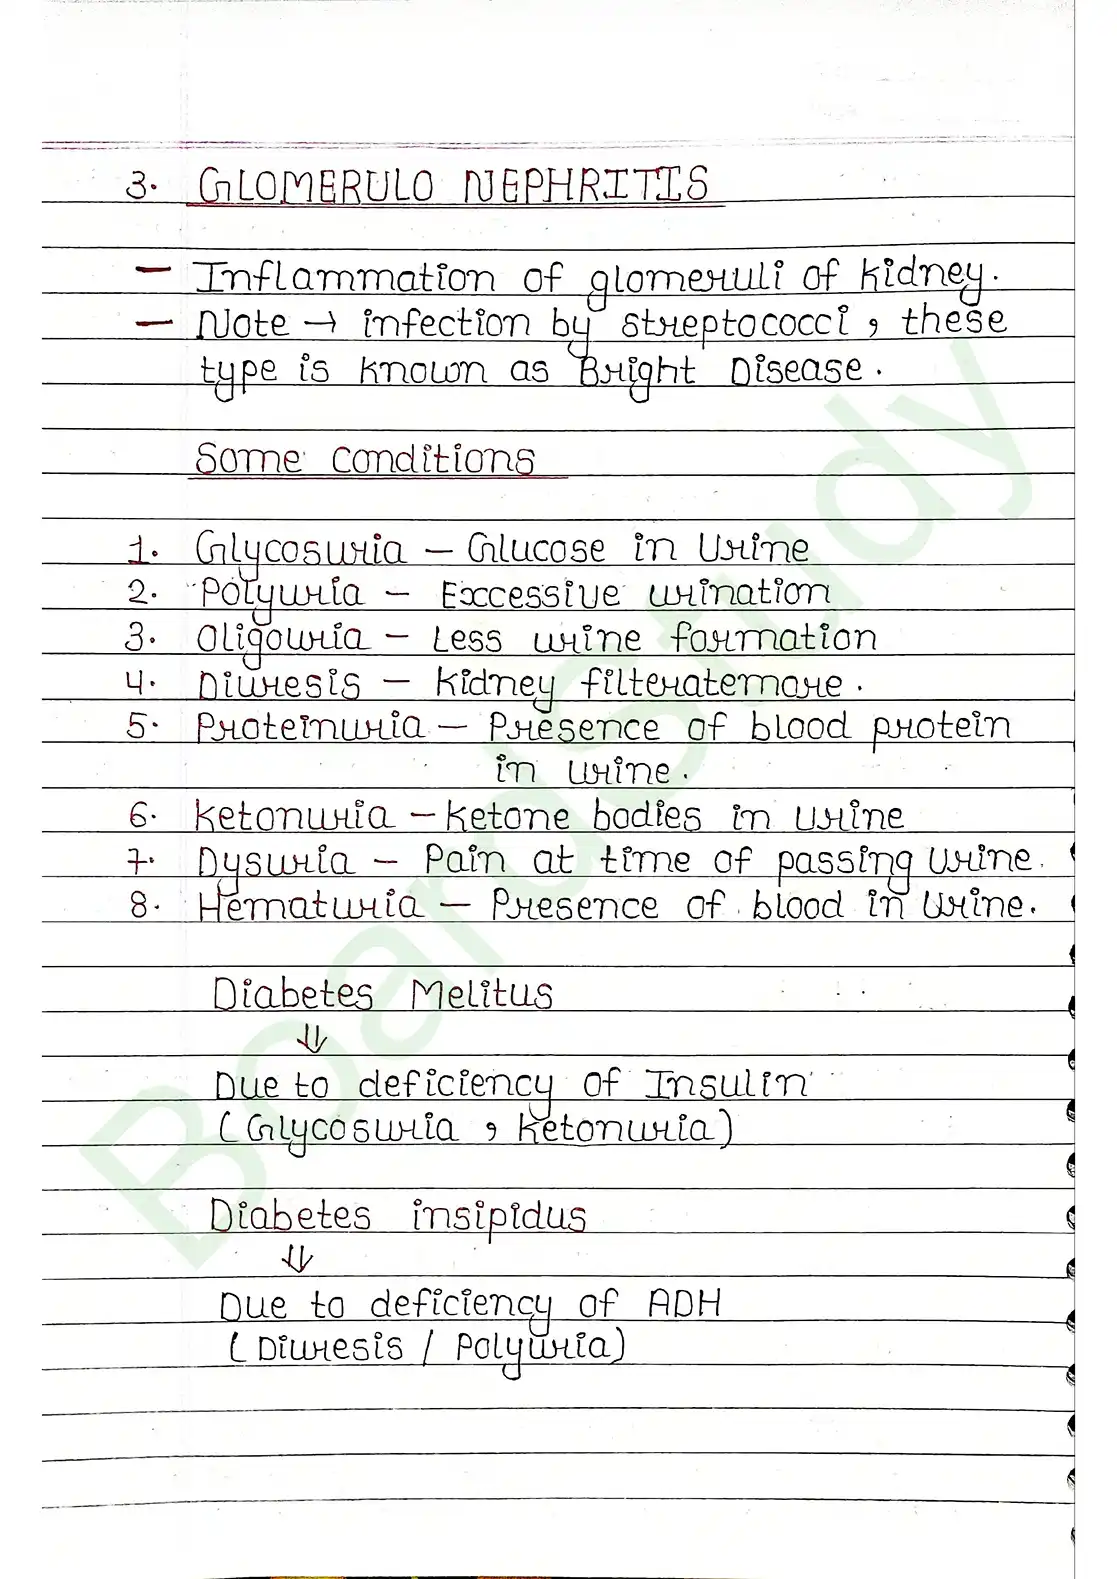 3. GLOMERULO NEPHRITIS
– Inflammation of glomeruli of kidney.
– Note → infection by streptococci , these
type is known as Bright Disease.
Some conditions
1. Glycosuria – Glucose in Urine
2. Polyuria – Excessive urination
3. Oligouria – Less urine formation
4. Diuresis – kidney filteratemore.
5. Proteinuria – Presence of blood protein
in urine.
6. Ketonuria – Ketone bodies in Urine
7. Dysuria – Pain at time of passing Urine.
8. Hematuria – Presence of blood in Urine.
Diabetes Melitus
⇓
Due to deficiency of Insulin
(Glycosuria , Ketonuria)
Diabetes insipidus
⇓
Due to deficiency of ADH
(Diuresis / Polyuria)
BoardStudy